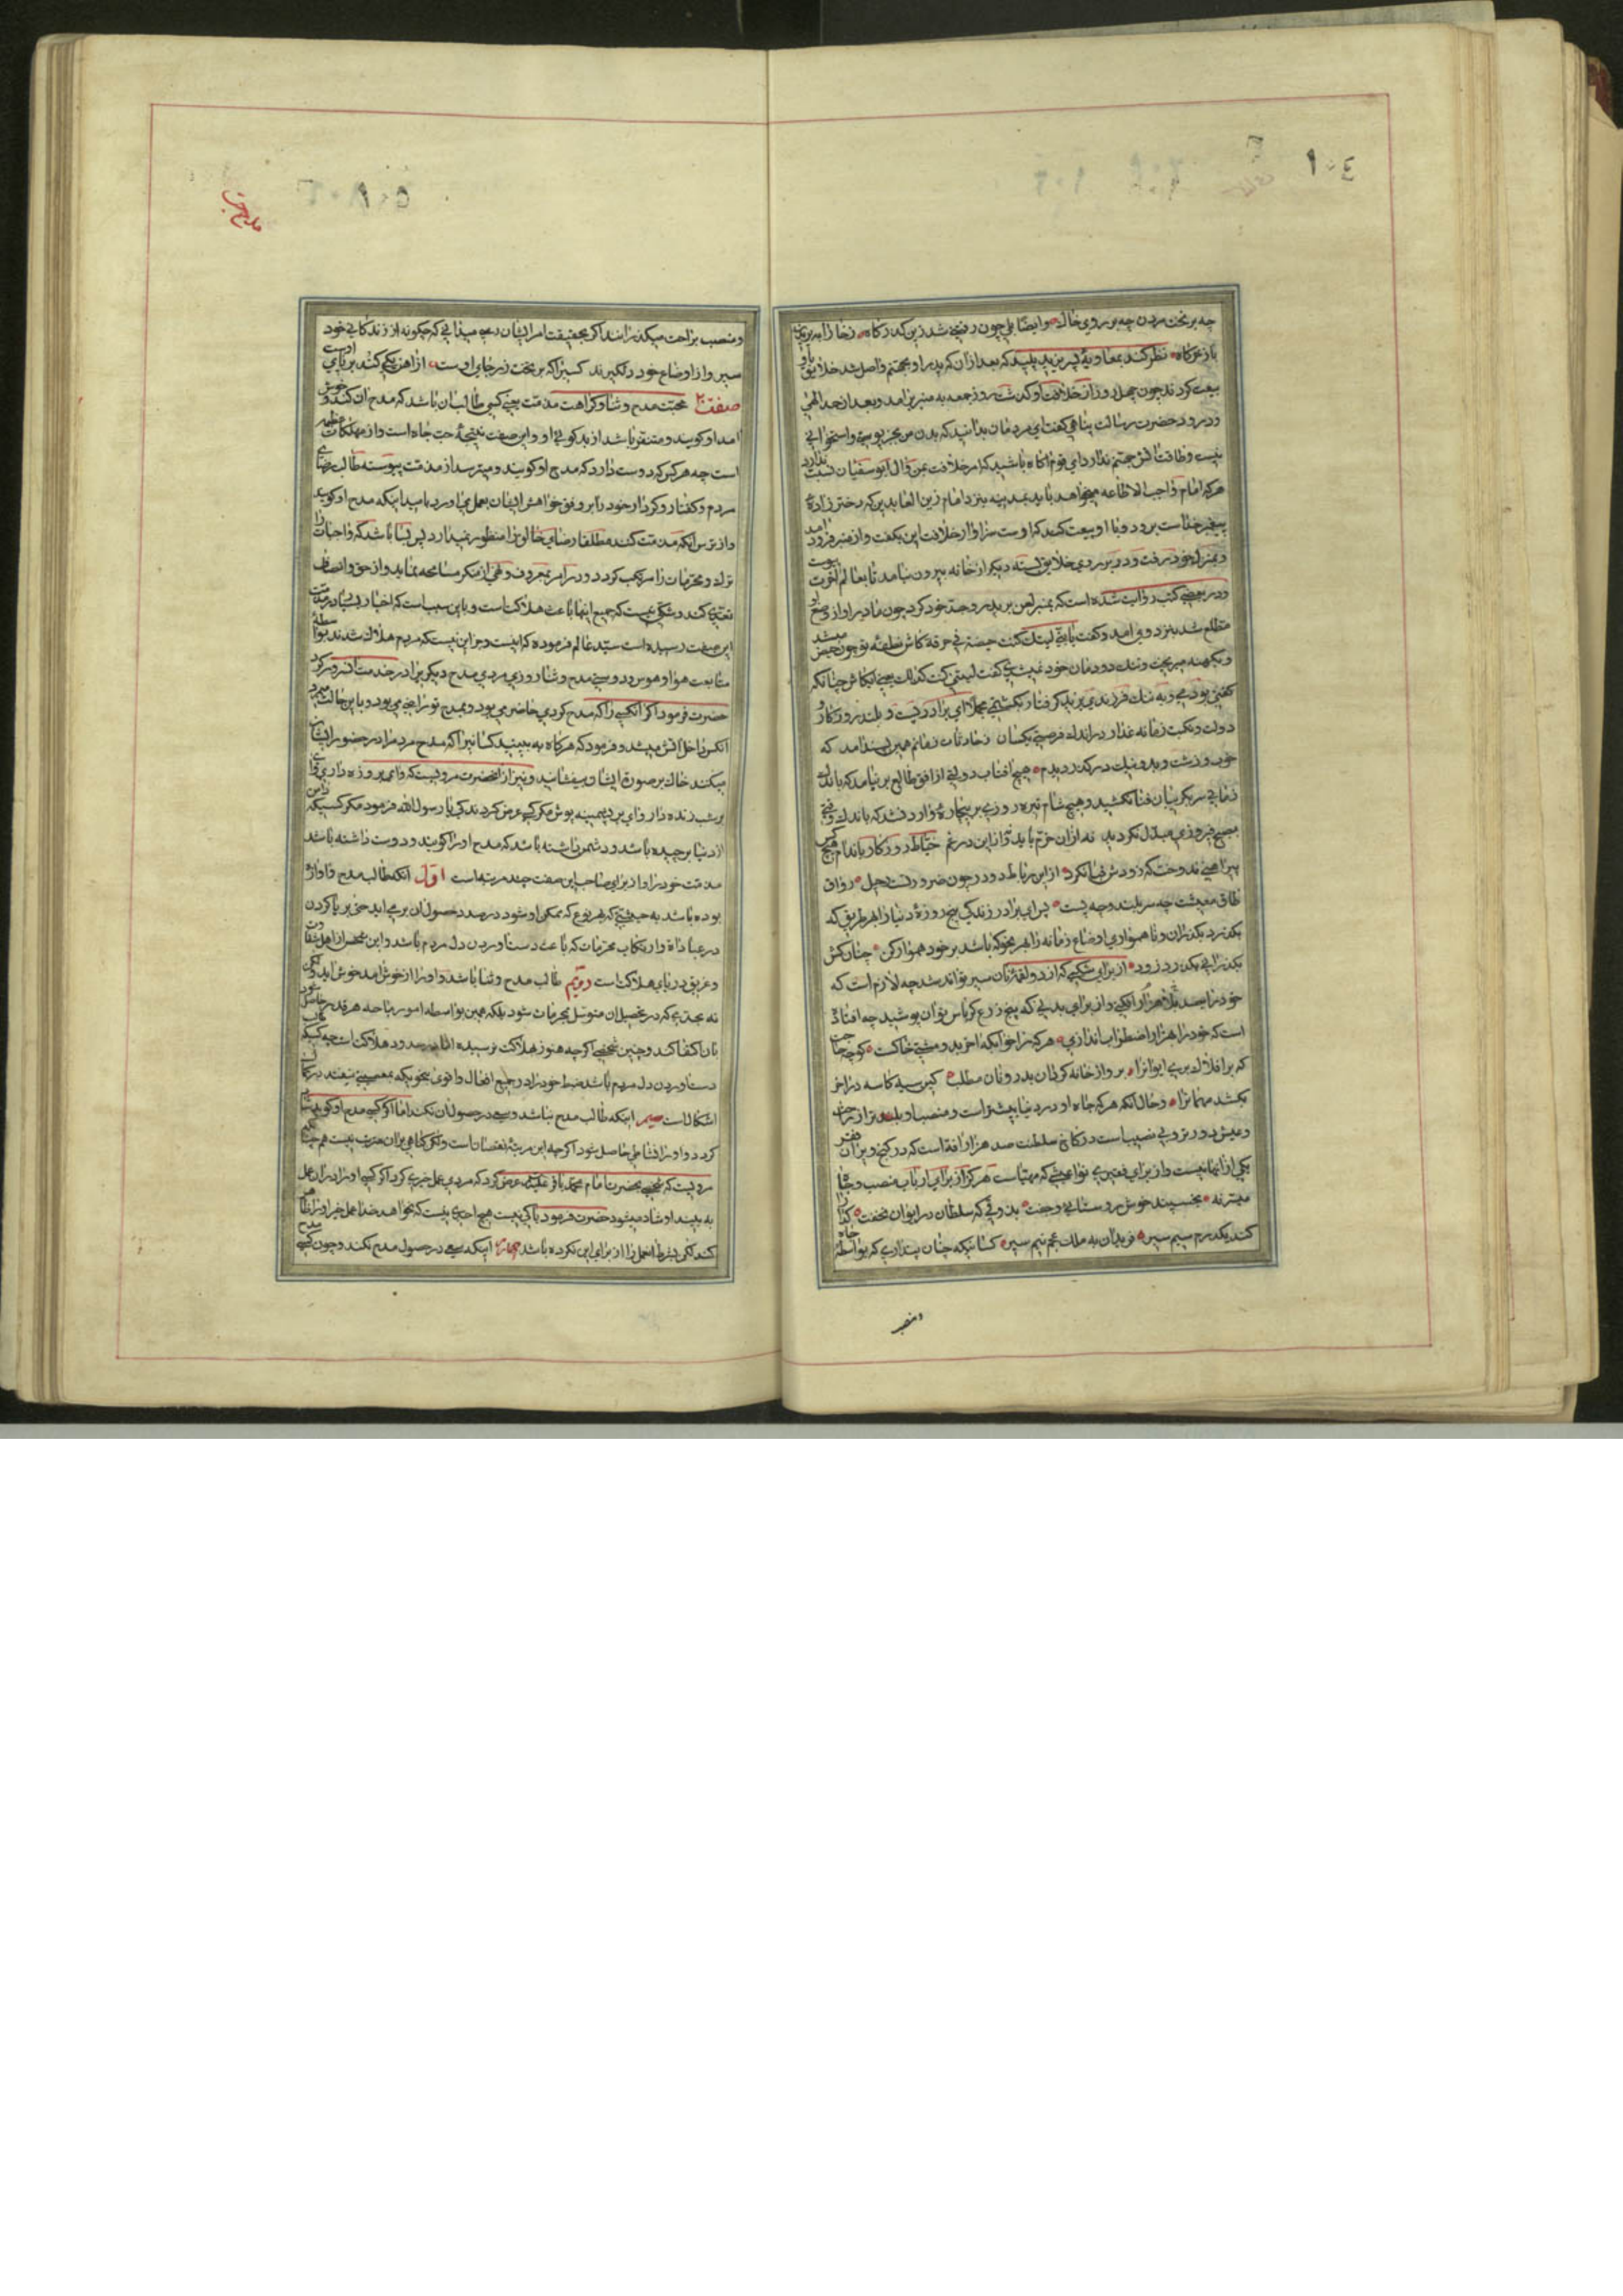 ١٠٤
چه بر تخت مردن چه بر روی خاک وایضا بلی چون رفتنی شد زین کذرکاه زخارا به بر
باز عرکاه نظر کنید بمعاویة بن یزید پلید که بعد از ان که پدر او بجهنم واصل شد خلایق با او
بیعت کردند چون چهل روز از خلافت او کذشت روز جمعه به منبر بر امد و بعد از حمد الهی
و درود حضرت رسالت پناهی کفت ای مردمان بدانید که بدن من بجز پوستی و استخوانی
نیست و طاقت اتش جهنم ندارد ای قوم اکاه باشید که امر خلافت بمن و ال ابوسفیان نسبت ندارد
هرکه امام واجب الاطاعه میخواهد باید بمدینه بنزد امام زین العابدین که دختر زاده
پیغمبر خداست برود و با او بیعت کند که اوست سزاوار خلافت این بکفت و از منبر فرود امد
و بمنزل خود رفت و در بر روی خلایق بسته دیکر از خانه بیرون نیامد تا بعالم اخرت پیوست
و در بعضی کتب روایت شده است که بمنبر لعن بر پدر و جد خود کرد چون مادر او از وضع او
مطلع شد بنزد وی امد و کفت یا بنی لیتک کنت حیضة فی خرقة کاش نطفه تو چون حیض میشد
کفت لیتنی کنت کذلک یعنی ای کاش چنانکه
دولت و نکبت زمانه غدار در اندک فرصتی یکسان و حادثات زمانم همین پسند امد که
خوب و زشت و بد و نیک در کذر دیدم هیچ افتاب دولتی از افق طالع بر نیامد که باندک
زمانی سر بکریبان فنا نکشید و هیچ شام تیره روزی بر بیچاره وارد نشد که باندک وقتی
بصبح فیروزی مبدل نکردید نه ازان خرم باید و نه از این در غم خیاط روزکار باندام هیچکس
پیراهنی ندوخت که زودش قبا نکرد از این رباط دو در چون ضرورتست رحیل رواق
طاق معیشت چه سر بلند و چه پست پس ای برادر زندکی پنج روزه دنیا را بهر طریق که
بکذرد بکذران و ناهمواری اوضاع زمانه را بهر نحو که باشد بر خود هموار کن چنان کش
بکذرانی بکذرد زود از برای شکمی که از دو لقمه نان سیر تواند شد چه لازم است که
خود را بصد بلا هزار افکنی و از برای بدنی که پنج ذرع کرباس توان پوشید چه افتاده
است که خود را بهزار اضطراب اندازی هر کرا خوابکه اخر بدو مشتی خاکست کو چه حاجت
که بر افلاک بری ایوان را برو از خانه کردون بدر و نان مطلب کین سیه کاسه در اخر
بکشد مهمان را و حال انکه هرکه جاه او در دنیا بیشتر است و منصب او بلندتر از راحت
و عیش دورتر و بی نصیب است در کاخ سلطنت صد هزار افة است که در کنج ویران فقر
یکی از انها نیست و از برای فقیر بی نوا عیشی که مهیاست هرکز از برای ارباب نصب و جاه
میسر نه بخسبند خوش روستائی و جفت بذوقی که سلطان در ایوان نخفت کدا را
کند یکدرم سیم سیر فریدون به ملک عجم نیم سیر کسانیکه چنان پنداری که بواسطه جاه
ومنصب
١٠٥
و منصب براحت میکذرانند اکر بحقیقت امر ایشان رسی میدانی که چکونه از زندکانی خود
سیر و از اوضاع خود دلکیرند کسی را که بر تخت زر جای اوست از اهن یکی کند بر پای اوست
صفت محبت مدح و ثنا و کراهت مذمت یعنی کسی طالب ان باشد که مدح ان کنند و خوش
امد او کویند و متنفر باشد از بدکوئی او و این صفت نتیجه حب جاه است و از مهلکات عظیمه
است چه هرکس که دوست دارد که مدح او کویند و میترسد از مذمت پیوسته طالب رضای
مردم و کفتار و کردار خود را بر وفق خواهش ایشان بعمل می اورد بامید اینکه مدح او کویند
و از ترس اینکه مذمت کنند مطلقا رضای خالق را منظور نمیدارد پس بسا باشد که واجبات را
ترک و محرمات را مرتکب کردد و در امر بمعروف و نهی از منکر مسامحه نماید و از حق و انصاف
تعدی کند و شکی نیست که جمیع اینها باعث هلاکت است و باین سبب است که اخبار بسیار در مذمت
این صفت رسیده است سید عالم فرموده که اینست و جز این نیست که مردم هلاک شدند بواسطه
متابعت هوا و هوس و دوستی مدح و ثنا روزی مردی مدح دیکری را در خدمت انسرور کرد
حضرت فرمود اکر انکسی را که مدح کردی حاضر می بود و بمدح تو راضی می بود و باین حالت میمرد
انکس داخل اتش میشد و فرمود که هرکاه به بینید کسانی را که مدح مردم را در حضور ایشان
میکنند خاک بر صورة ایشان بیفشانید و نیز از انحضرت مرویست که وای بر روزه دار وای
بر شب زنده دار وای بر پشمینه پوش مکر کسی عرض کردند که یا رسول الله فرمود مکر کسیکه دامن
از دنیا برچیده باشد و دشمن داشته باشد که مدح او را کویند و دوست داشته باشد
مذمت خود را و از برای صاحب این صفت چند مرتبه است اول انکه طالب مدح و اوازه
بوده باشد به حیثیتی که بهر نوع که ممکن او شود در صدد حصول ان بر می اید حتی بریا کردن
در عبادة و ارتکاب محرمات که باعث بدست اوردن دل مردم باشد و این شخص از اهل شقاوت
و غریق دریای هلاکت است دویم طالب مدح و ثنا باشد و او را از خوش امد خوش اید ولکن
نه بحدی که در تحصیل ان متوسل بمحرمات شود بلکه همین بواسطه امور مباحه هر قدر حاصل شود
بان اکتفا کند و چنین شخصی اکرچه هنوز بهلاکت نرسیده اما در صدد هلاکت است چه کسیکه طالب
بدست اوردن دل مردم باشد ضبط خود را در جمیع افعال و اقوال بنحویکه بمعصیتی نیفتد در کمال
اشکال است سیم اینکه طالب مدح نباشد و سعی در حصول ان نکند اما اکر کسی مدح او کوید شاد
کردد و او را نشاطی حاصل شود اکرچه این مرتبه نقصان است ولکن کناهی بر ان مترتب نیست همچنانکه
مرویست که شخصی بحضرت امام محمد باقر علیه السلام عرض کرد که مردی عمل خیری کرد اکر کسی او را در ان عمل
به بیند او شاد میشود حضرت فرمود باکی نیست هیچ احدی نیست که نخواهد خدا عمل خیر او را ظاهر
کند لکن بشرط انعمل را از برای این نکرده باشد چهارم اینکه سعی در حصول مدح نکند و چون کسی مدح